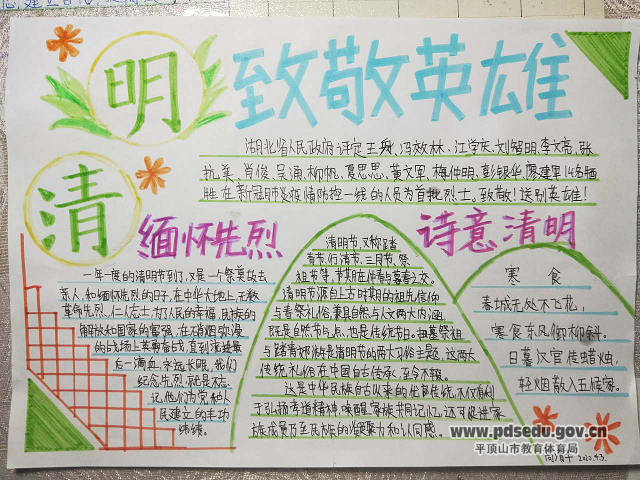 明
致敬英雄
湖北省人民政府评定王兵、冯效林、江学庆、刘智明、李文亮、张
抗美、肖俊、吴涌、柳帆、夏思思、黄文军、梅仲明、彭银华、廖建军14名牺
牲在新冠肺炎疫情防控一线的人员为首批烈士。致敬!送别英雄!
清
缅怀先烈
诗意清明
一年一度的清明节到了,又是一个祭奠故去
亲人,和缅怀先烈的日子,在中华大地上,无数
革命先烈、仁人志士,为了人民的幸福,民族的
解放和国家的富强,在硝烟弥漫
的战场上英勇奋战,直到流尽最
后一滴血,永远长眠。我们
纪念先烈就是永
记他们为党和人
民建立的丰功
伟绩。
清明节,又称踏
春节、行清节、三月节、祭
祖节等,节期在仲春与暮春之交。
清明节源自上古时期的祖先信仰
与春祭礼俗,兼具自然与人文两大内涵,
既是自然节气点,也是传统节日。扫墓祭祖
与踏青郊游是清明节的两大习俗主题,这两大
传统礼俗在中国自古传承,至今不辍。
这是中华民族自古以来的优良传统,不仅有利
于弘扬孝道精神,唤醒家族共同记忆,还可促进家
族成员乃至民族的凝聚力和认同感。
寒食
春城无处不飞花,
寒食东风御柳斜。
日暮汉宫传蜡烛,
轻烟散入五侯家。
www.pdsedu.gov.cn
平顶山市教育体育局
2020.4.3.